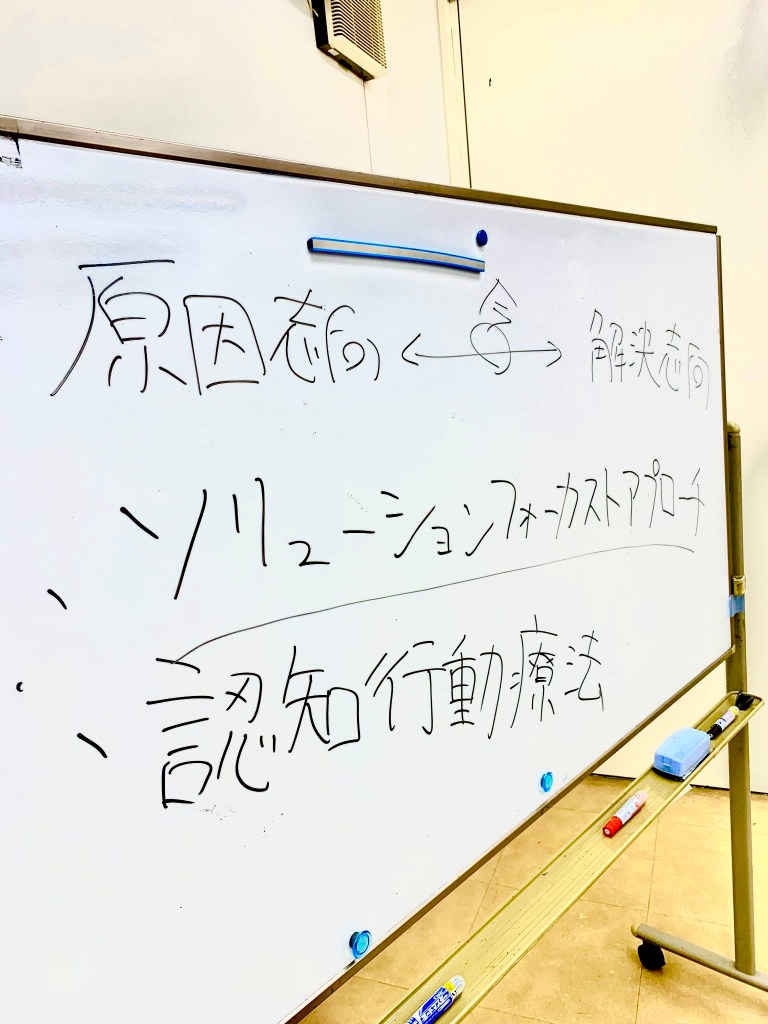 原因志向 ↔ 今 解決志向
、ソリューションフォーカストアプローチ
、認知行動療法